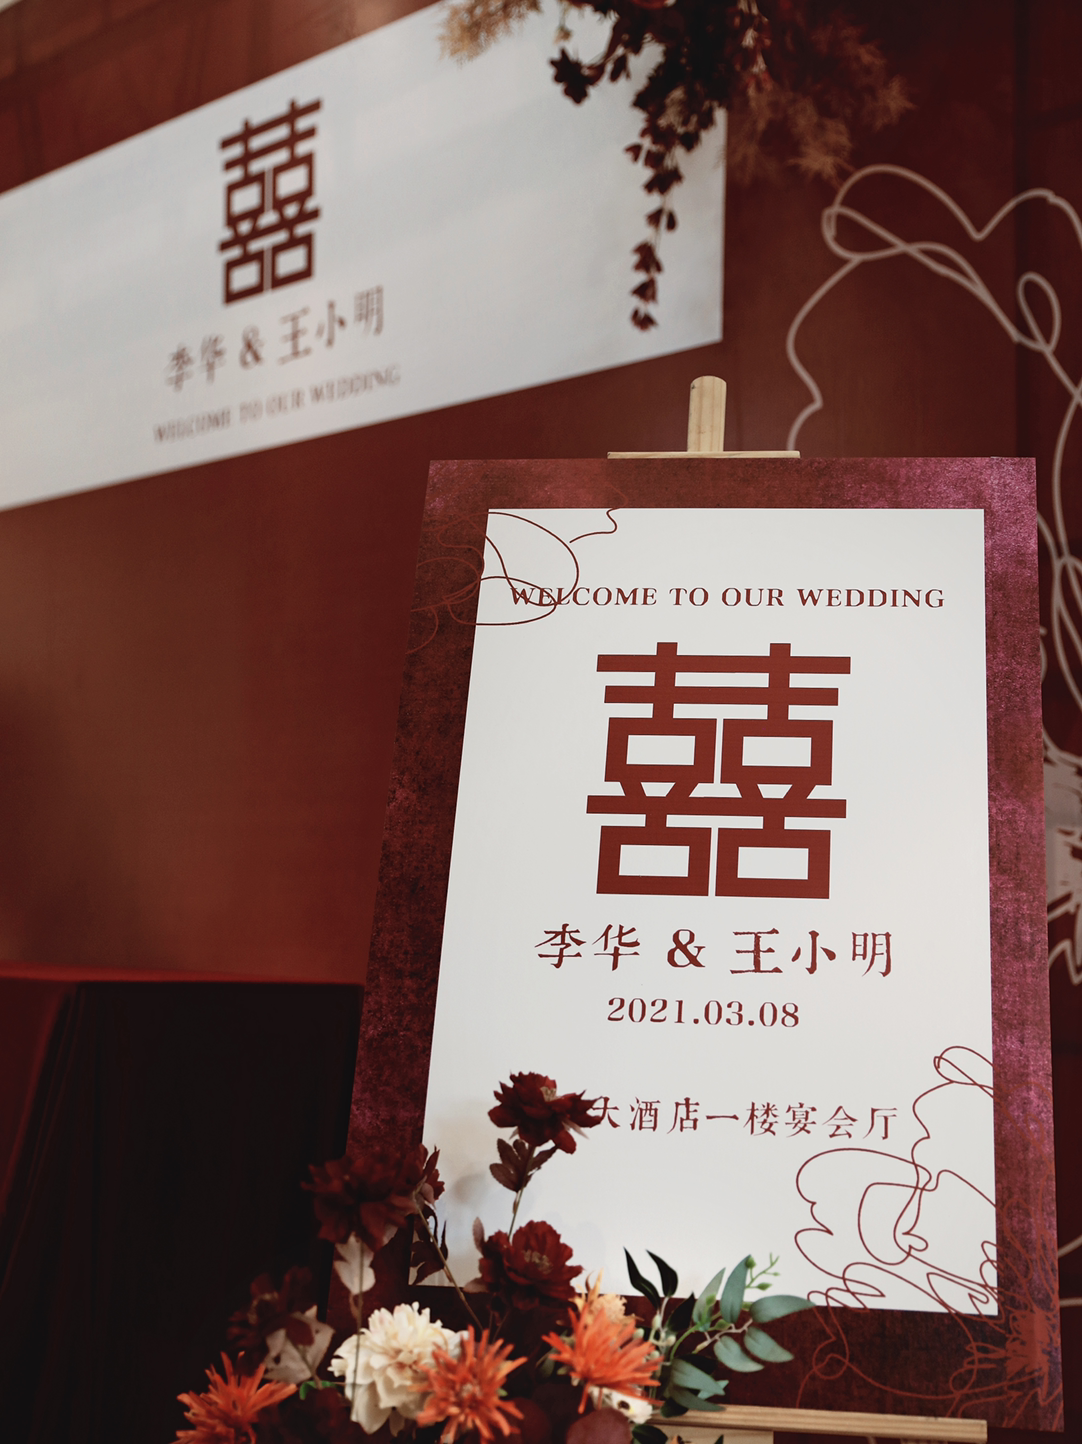 囍
李华 & 王小明
WELCOME TO OUR WEDDING
WELCOME TO OUR WEDDING
囍
李华 & 王小明
2021.03.08
大酒店一楼宴会厅